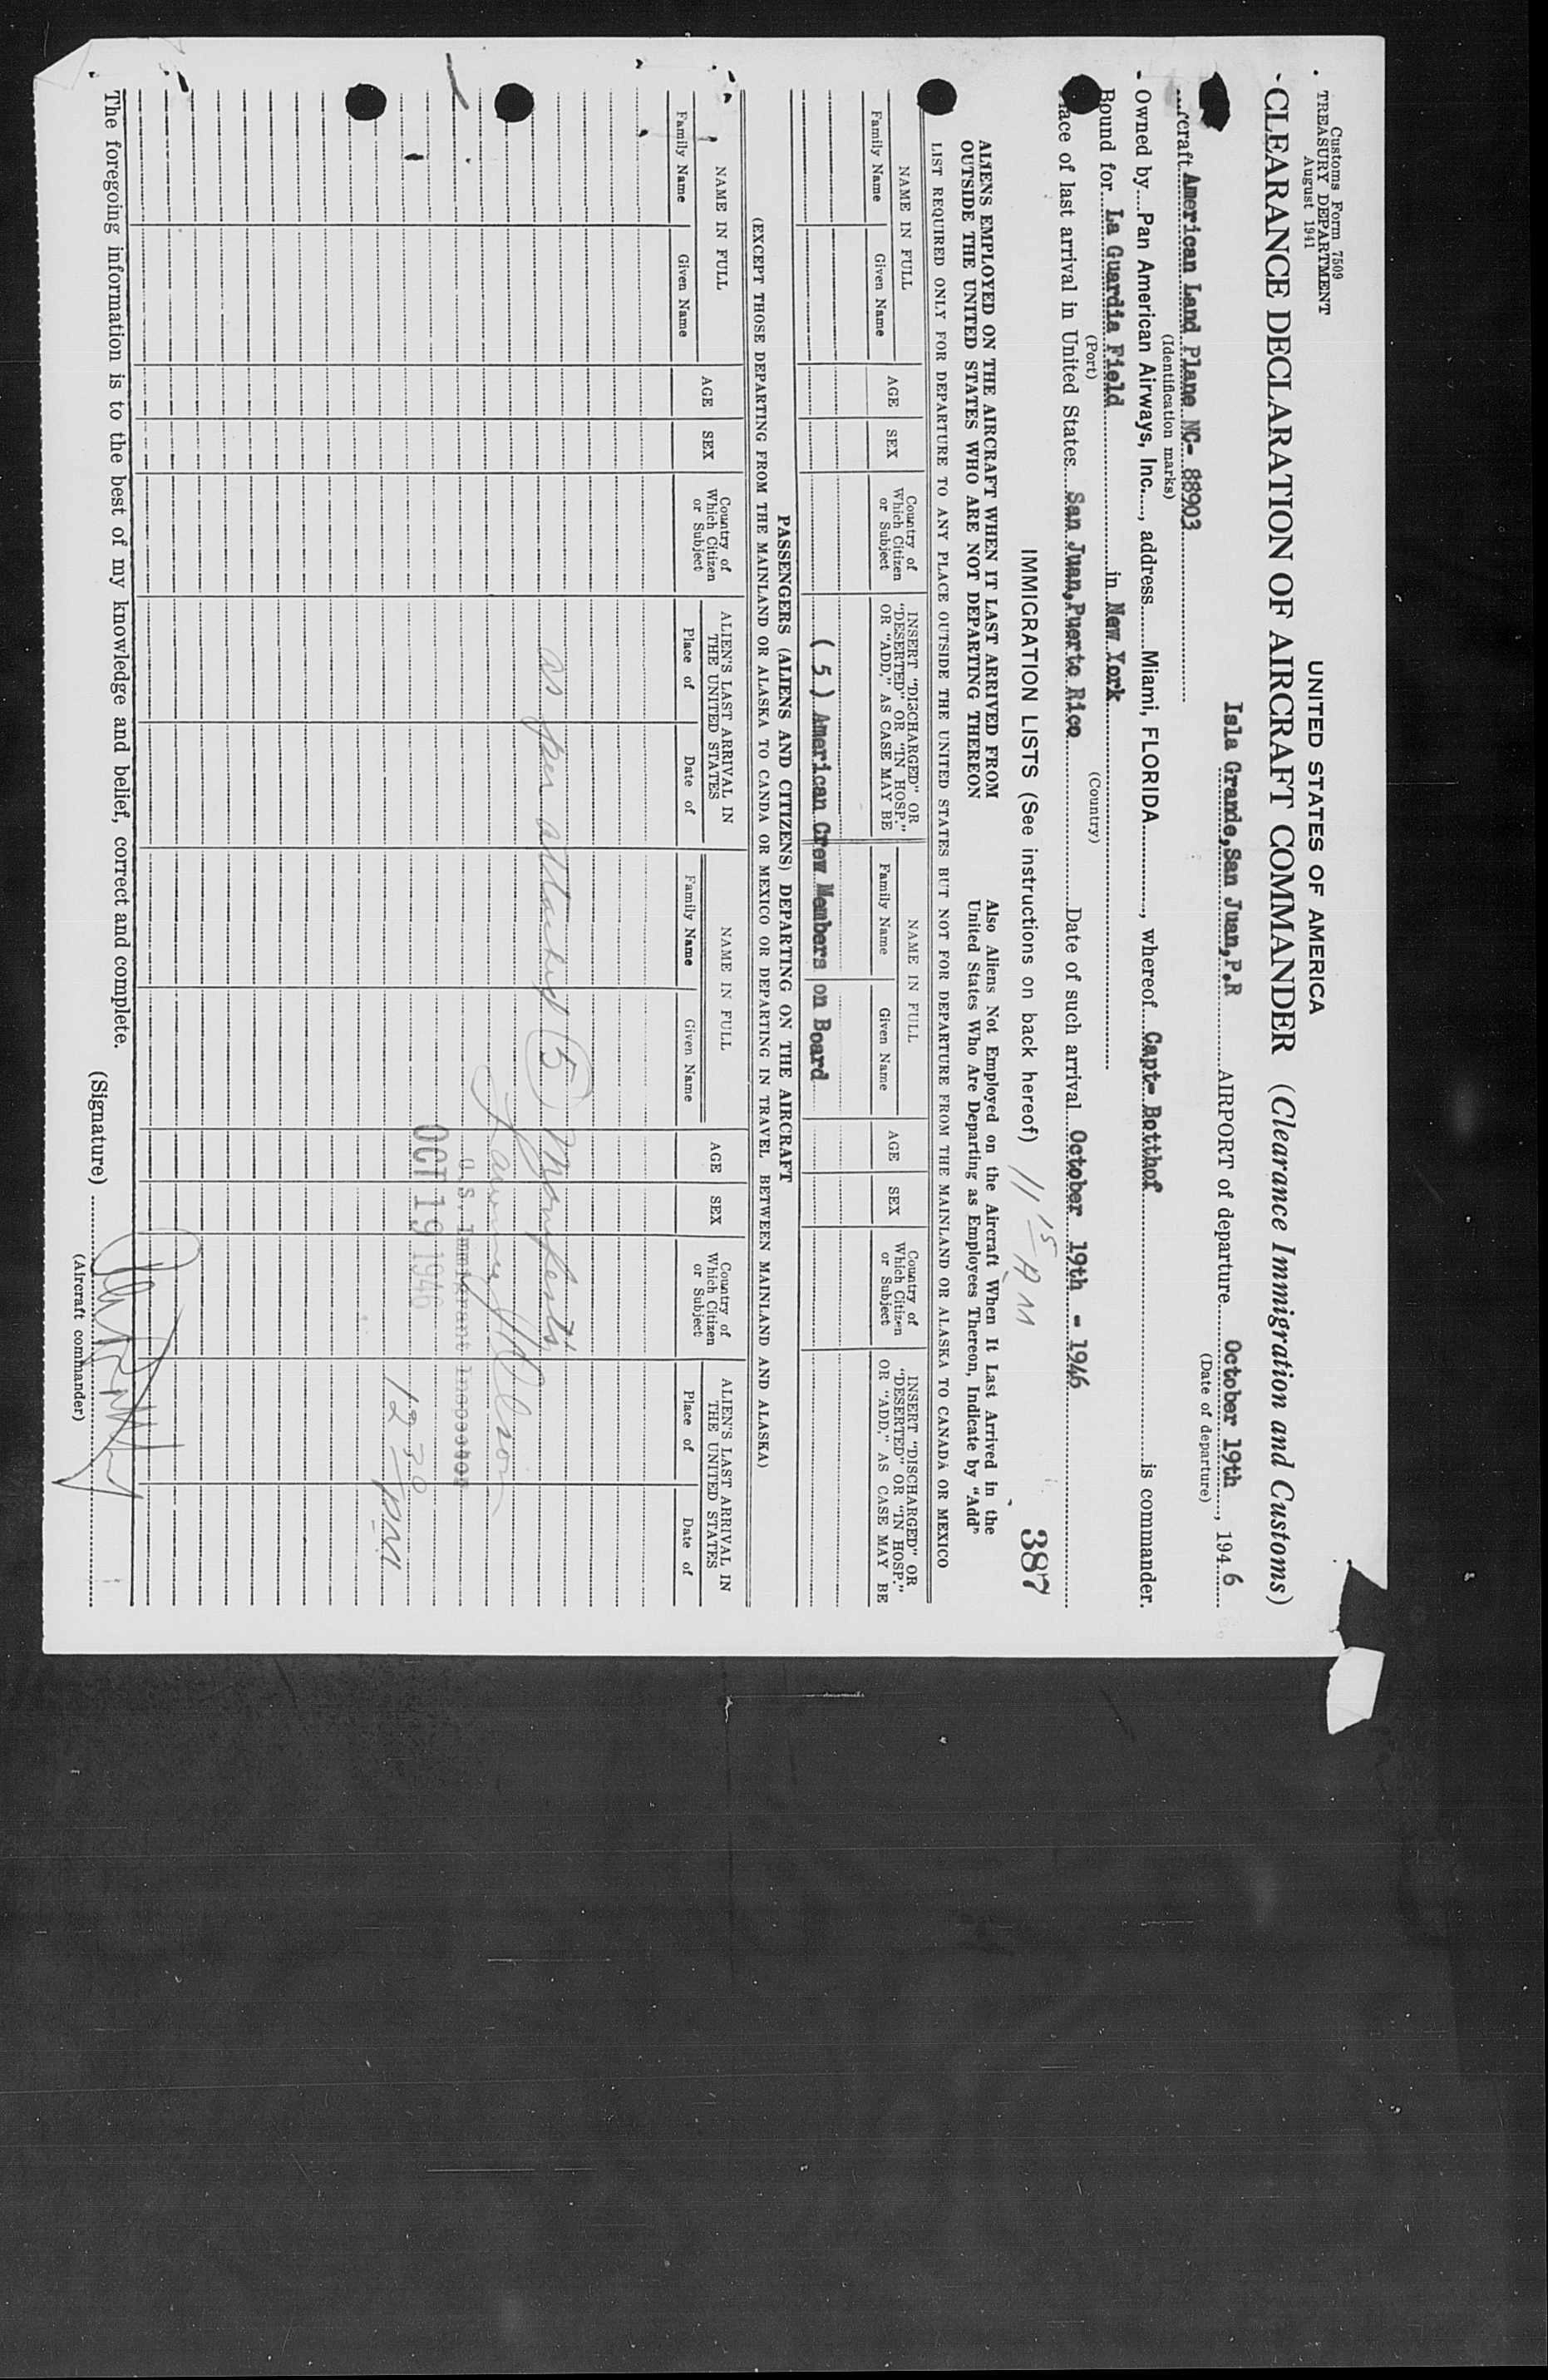 Customs Form 7509
TREASURY DEPARTMENT
August 1941
UNITED STATES OF AMERICA
CLEARANCE DECLARATION OF AIRCRAFT COMMANDER (Clearance Immigration and Customs)
Isla Grande,San Juan,P.R AIRPORT of departure October 19th, 194 6
(Date of departure)
American Land Plane NC- 88903
(Identification marks)
Owned by Pan American Airways, Inc., address Miami, FLORIDA, whereof Capt- Botthof is commander.
Bound for La Guardia Field in New York
(Port) (Country)
of last arrival in United States San Juan,Puerto Rico Date of such arrival October 19th - 1946
IMMIGRATION LISTS (See instructions on back hereof) 11 15 AM 387
ALIENS EMPLOYED ON THE AIRCRAFT WHEN IT LAST ARRIVED FROM
OUTSIDE THE UNITED STATES WHO ARE NOT DEPARTING THEREON
Also Aliens Not Employed on the Aircraft When It Last Arrived in the
United States Who Are Departing as Employees Thereon, Indicate by "Add"
LIST REQUIRED ONLY FOR DEPARTURE TO ANY PLACE OUTSIDE THE UNITED STATES BUT NOT FOR DEPARTURE FROM THE MAINLAND OR ALASKA TO CANADA OR MEXICO
NAME IN FULL
Family Name Given Name
AGE
SEX
Country of
Which Citizen
or Subject
INSERT "DISCHARGED" OR
"DESERTED" OR "IN HOSP."
OR "ADD," AS CASE MAY BE
NAME IN FULL
Family Name Given Name
AGE
SEX
Country of
Which Citizen
or Subject
INSERT "DISCHARGED" OR
"DESERTED" OR "IN HOSP."
OR "ADD," AS CASE MAY BE
( 5 ) American Crew Members on Board
PASSENGERS (ALIENS AND CITIZENS) DEPARTING ON THE AIRCRAFT
(EXCEPT THOSE DEPARTING FROM THE MAINLAND OR ALASKA TO CANDA OR MEXICO OR DEPARTING IN TRAVEL BETWEEN MAINLAND AND ALASKA)
NAME IN FULL
Family Name Given Name
AGE
SEX
Country of
Which Citizen
or Subject
ALIEN'S LAST ARRIVAL IN
THE UNITED STATES
Place of Date of
NAME IN FULL
Family Name Given Name
AGE
SEX
Country of
Which Citizen
or Subject
ALIEN'S LAST ARRIVAL IN
THE UNITED STATES
Place of Date of
as per attached (5) Manifests
U.S. Immigrant Inspector
OCT 19 1946
12 30 PM
The foregoing information is to the best of my knowledge and belief, correct and complete.
(Signature)
(Aircraft commander)